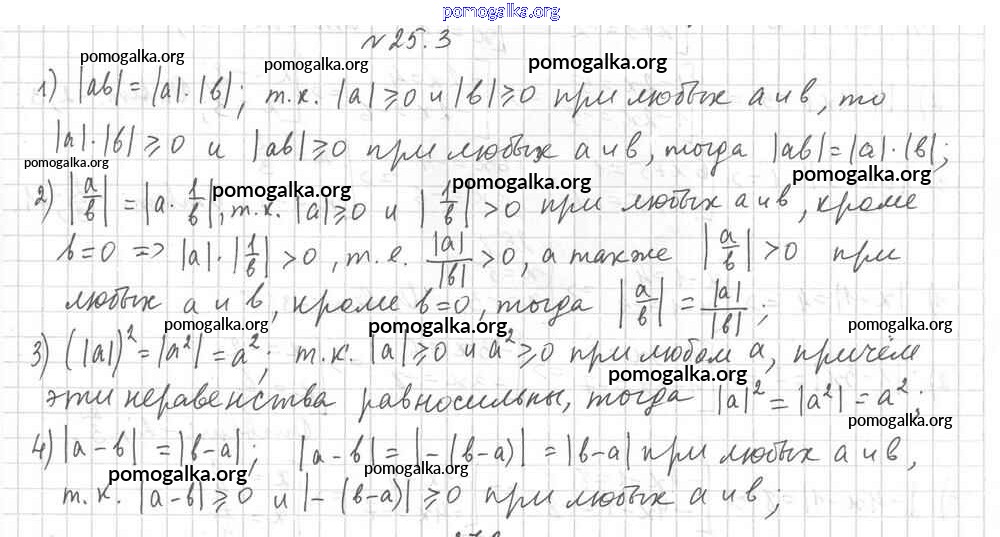 pomogalka.org
№25.3
pomogalka.org pomogalka.org pomogalka.org
1) |ab| = |a|·|b|; т.к. |a| ⩾ 0 и |b| ⩾ 0 при любых a и b, то
|a|·|b| ⩾ 0 и |ab| ⩾ 0 при любых a и b, тогда |ab| = |a|·|b|;
pomogalka.org pomogalka.org pomogalka.org pomogalka.org
2) |a/b| = |a · 1/b|, т.к. |a| ⩾ 0 и |1/b| > 0 при любых a и b, кроме
b=0 => |a|·|1/b| > 0, т.е. |a|/|b| > 0, а также |a/b| > 0 при
любых a и b, кроме b=0, тогда |a/b| = |a|/|b|;
pomogalka.org pomogalka.org pomogalka.org
3) (|a|)² = |a²| = a²; т.к. |a| ⩾ 0 и a² ⩾ 0 при любом a, причём
pomogalka.org
эти неравенства равносильны, тогда |a|² = |a²| = a²;
pomogalka.org
4) |a-b| = |b-a|; |a-b| = |-(b-a)| = |b-a| при любых a и b,
pomogalka.org pomogalka.org
т.к. |a-b| ⩾ 0 и |-(b-a)| ⩾ 0 при любых a и b;